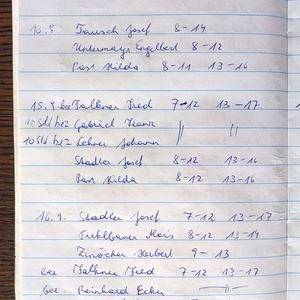 13.9. Tausch Josef 8-14
Untermayr Engelbert 8-12
Past Hilda 8-11 13-16
15.9. Falkner Fred 7-12 13-17
10 Std bez Gabriel Franz " "
10 Std bez Lehner Johann
Stadler Josef 8-12 13-16
Past Hilda 8-12 13-16
16.9. Stadler Josef 7-12 13-17
Pühlbauer Alois 8-12 13-17
Zinöcker Herbert 9-13
bez Falkner Fred 7-12 13-17
bez Reinhard Ecker